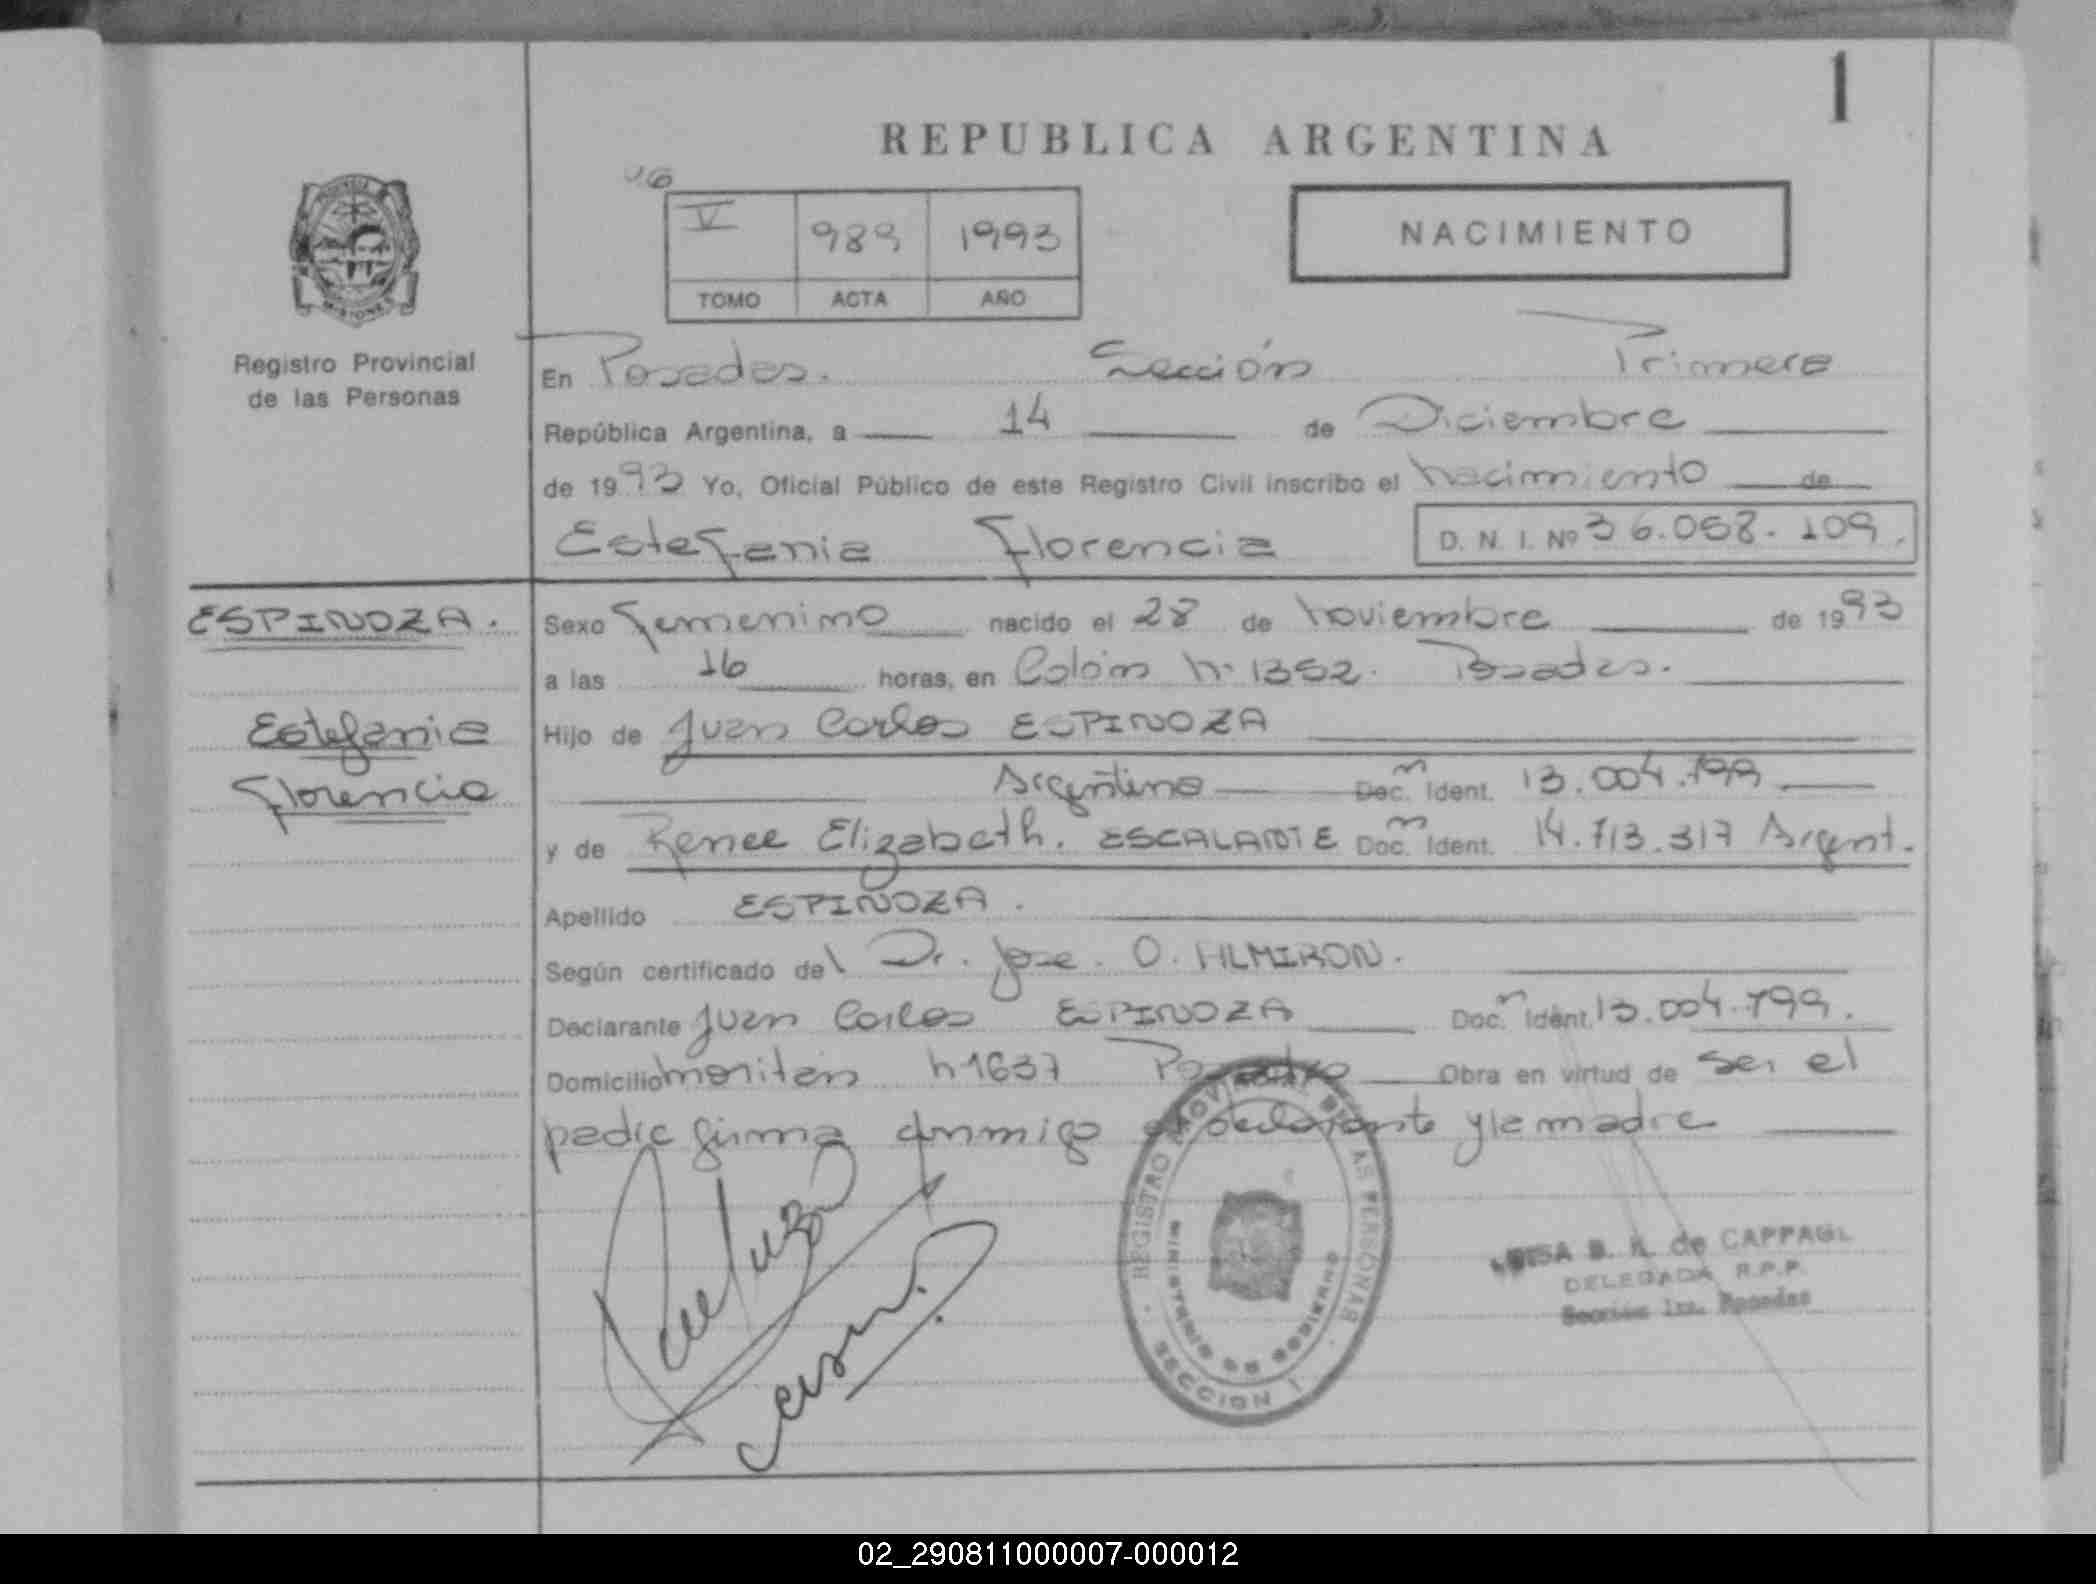 1
REPUBLICA ARGENTINA
V 989 1993
TOMO ACTA AÑO
NACIMIENTO
MISIONES
Registro Provincial
de las Personas
En Posadas. Sección Primera
República Argentina, a 14 de Diciembre
de 1993 Yo, Oficial Público de este Registro Civil inscribo el nacimiento de
Estefania Florencia D. N. I. Nº 36.058.109.
ESPINOZA.
Sexo Femenino nacido el 28 de noviembre de 1993
a las 16 horas, en Colón nº 1352. Posadas.
Estefania
Florencia
Hijo de Juan Carlos ESPINOZA
Argentino Doc. Ident. 13.004.799
y de Renee Elizabeth. ESCALANTE Doc. Ident. 14.713.317 Argent.
Apellido ESPINOZA.
Según certificado del Dr. Jose. O. ALMIRON.
Declarante Juan Carlos ESPINOZA Doc. Ident. 13.004.799.
Domicilio n 1637 Posadas Obra en virtud de ser el
padre firma conmigo el declarante y la madre
REGISTRO PROVINCIAL DE LAS PERSONAS
MINISTERIO DE GOBIERNO
SECCION 1
de CAPPAGLI
DELEGADA R.P.P.
Sección 1ra. Posadas
02_290811000007-000012